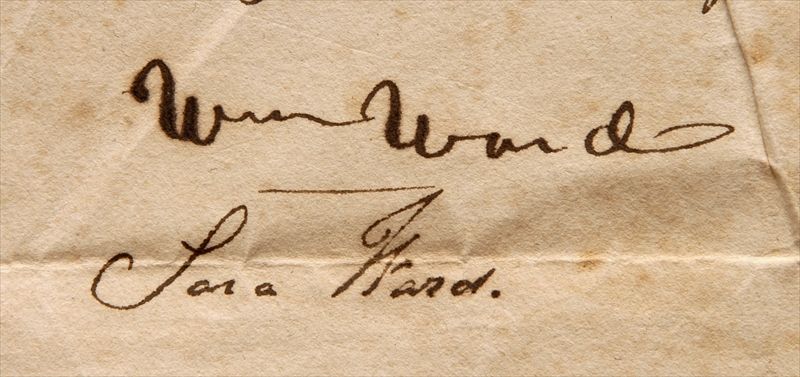 Wm Ward
Sara Ward.